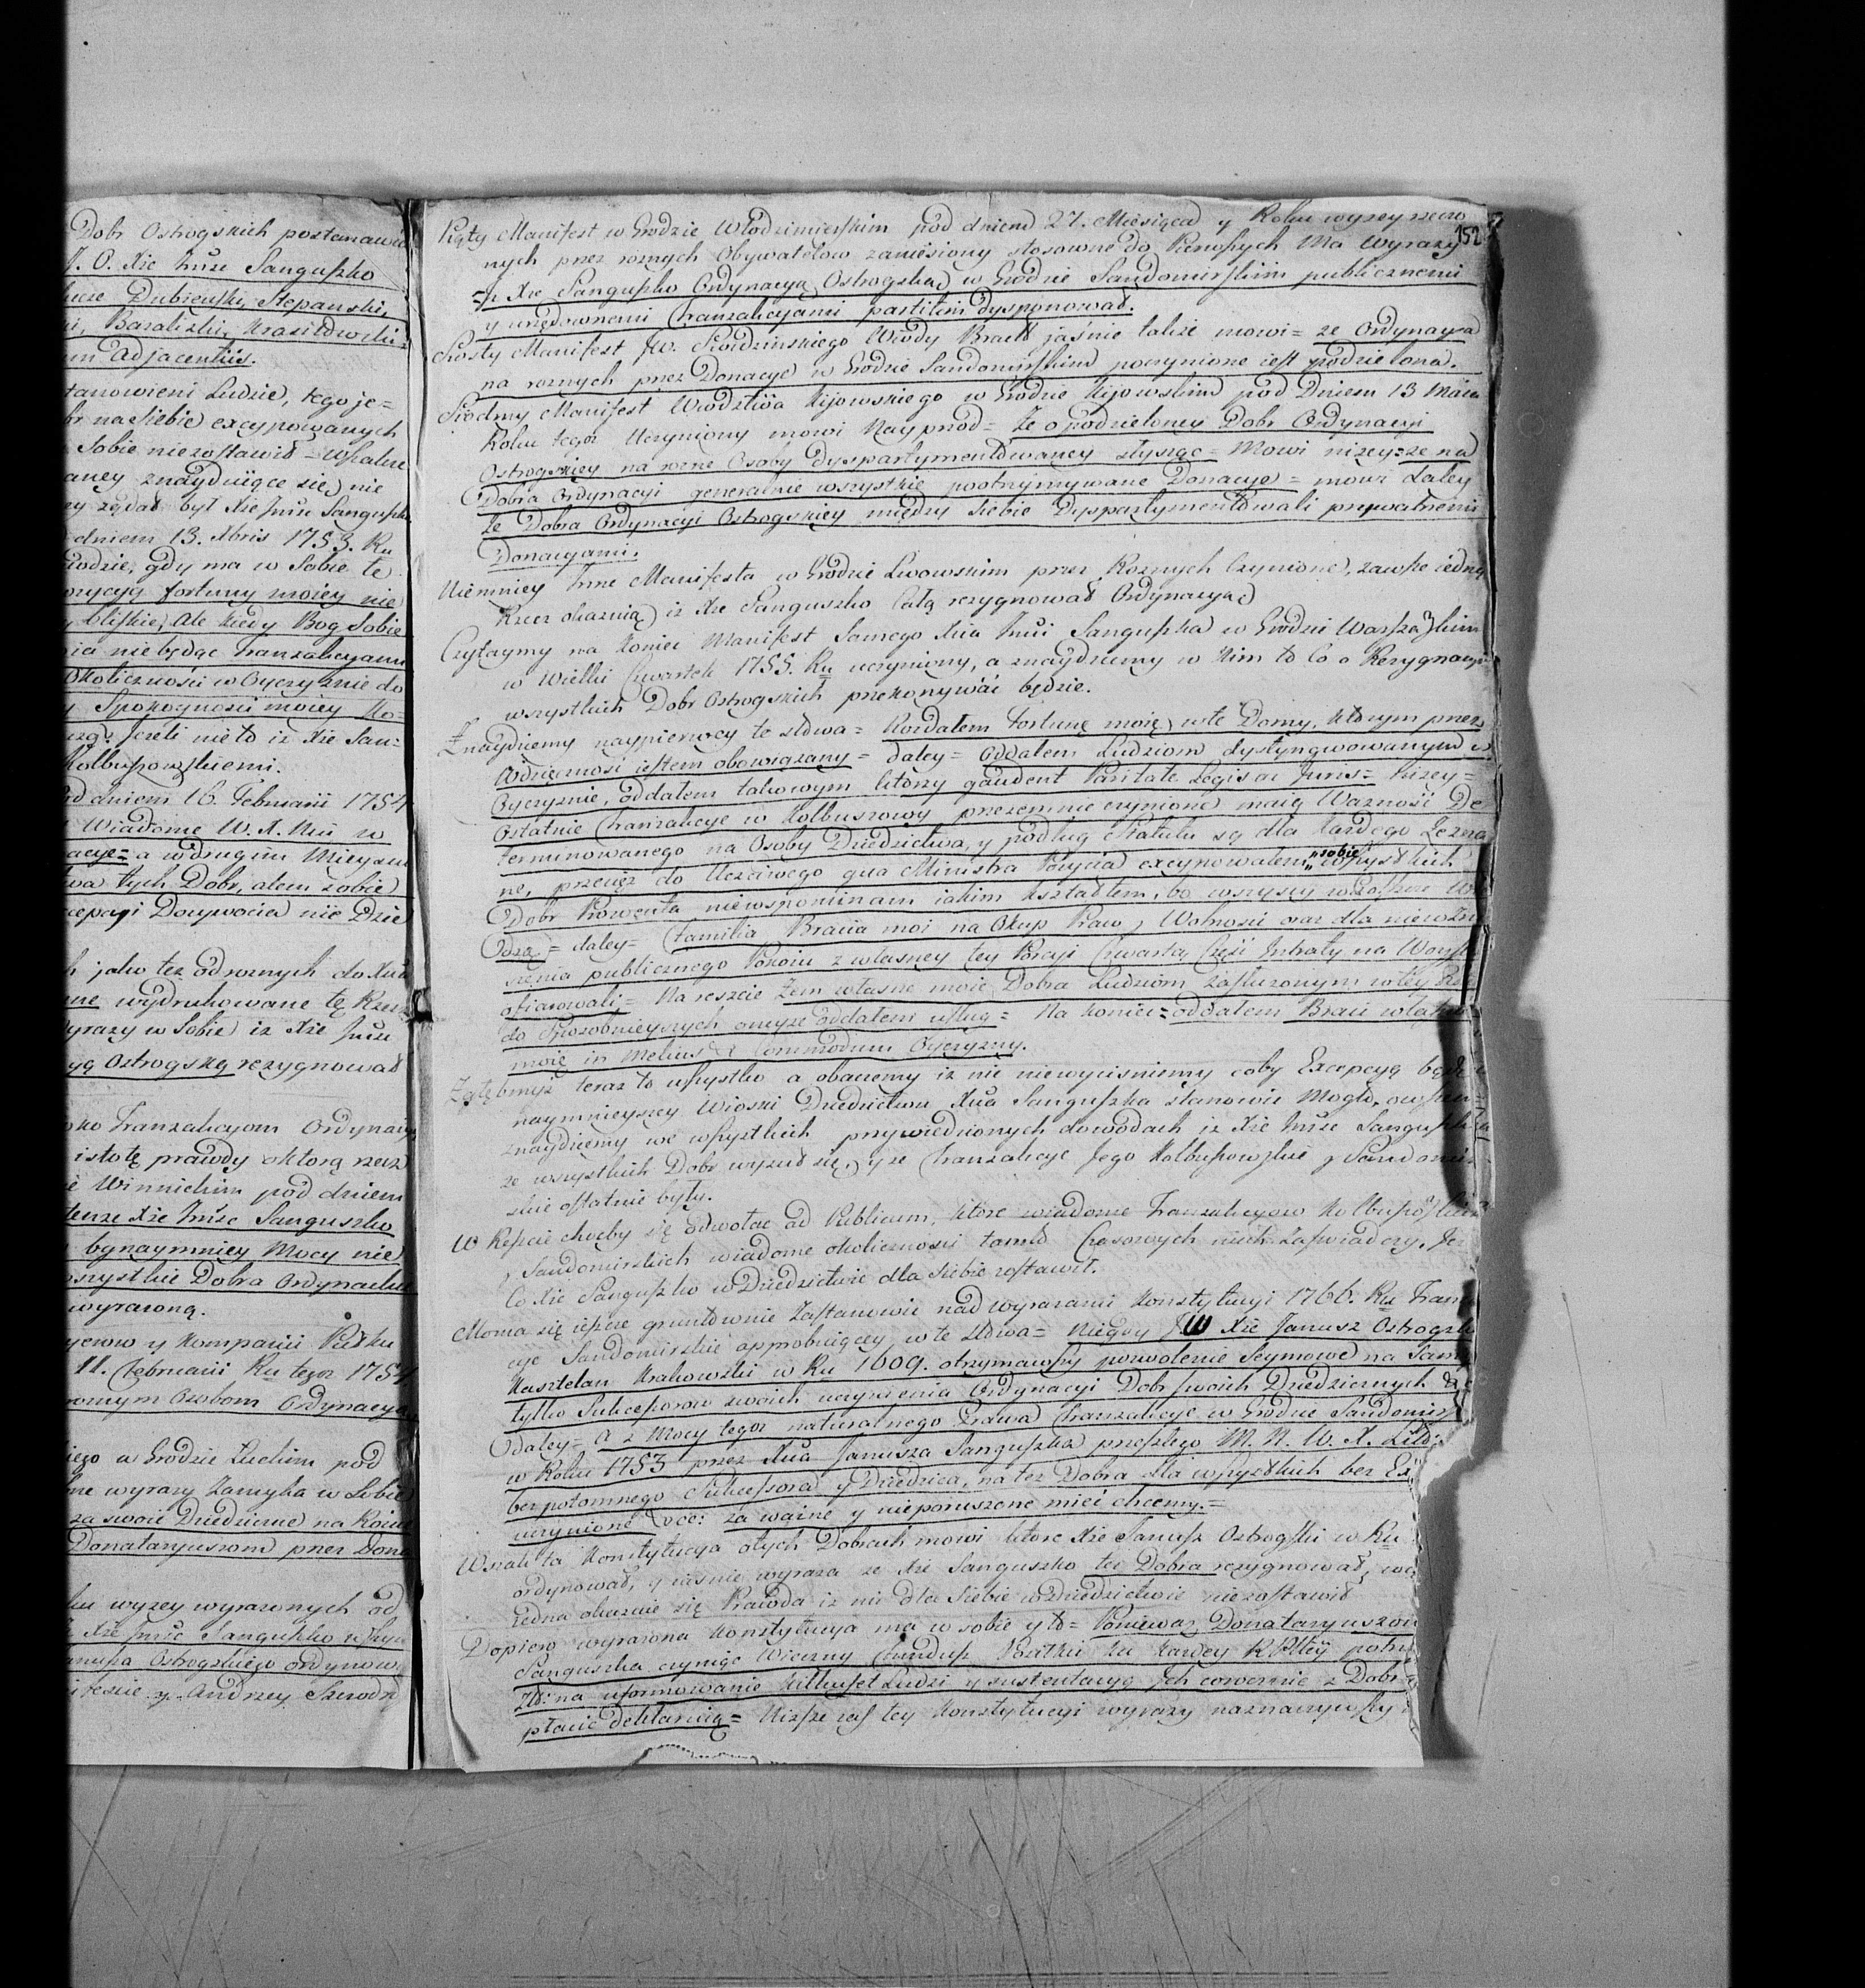 Dobr Ostrogskich postanawia
J. O. Xże Jmśc Sanguszko
klucze Dubieński, Stepański,
Bazaliiski, Krasiłowski
um Adjacentiis.
tanowieni Ludzie, tego je=
br na Siebie excypowanych
Sobie niezostawił = wszakże
aney znayduiące się nie
żądał był Xże Jmśc Sanguszko
dniem 13. Xbris 1753. Ru
Grodzie, gdy ma w Sobie te
ozycyą fortuny moiey nie
bliskie, Ale kiedy Bog Sobie
nie będąc Tranzakcyami
Okoliczności w Oyczyznie do
y Spokoyności moiey Ko=
Jeżeli nie to iż Xże San=
Kolbuszowskiemi.
od dniem 16. Februarii 1754
Wiadome W. X. Mci w
acye= a w drugim Mieyscu
twa tych Dobr, alem sobie
cepcyi Dożywocia nie Dzie
jako też od roznych do Xcia
wydrukowane tę Rzecz
wyrazy w Sobie iż Xże Jmśc
yą Ostrogską rezygnował
Tranzakcyom Ordynacyi
istotę prawdy o ktorą rzecz
Winnickim pod dniem
Xże Jmśc Sanguszko
bynaymniey Mocy nie
wszystkie Dobra Ordynackie
wyrażoną.
y Kompanii Pułku
11. Februarii Ru tegoż 1754
roznym Osobom Ordynacyą
iego w Grodzie Łuckim pod
ne wyrazy Zamyka w Sobie
za swoie Dziedziczne na Rożne
Donataryuszom przez Dona
ku wyżey wyrażonych od
Xże Jmśc Sanguszko wszys
anusza Ostrogskiego ordynow
y Andrzey Szwodn
152
Piąty Manifest w Grodzie Włodzimierskim pod dniem 27. Miesiąca y Roku wyżey rzeczo
nych przez roznych Obywatelow zaniesiony stosowne do Pierwszych Ma wyrazy
=iż Xże Sanguszko Ordynacyą Ostrogską w Grodzie Sandomirskim publicznemi
y urzędownemi Tranzakcyami partitim dysponował.
Szosty Manifest Jw. Siodzinskiego Wwdy Bracł jaśnie także mowi= że Ordynacya
na roznych przez Donacye w Grodzie Sandomirskim poczynione iest podzielona.
Siodmy Manifest Wwdztwa Kijowskiego w Grodzie Kijowskim pod Dniem 13 Maia
Roku tegoż Uczyniony mowi Nayprzod= Że o podzieloney Dobr Ordynacyi
Ostrogskiey na rozne Osoby dyspartymentowaney słysząc= Mowi niżey= że na
Dobra Ordynacyi generalnie wszystkie pootrzymywane Donacye = mowi daley
że Dobra Ordynacyi Ostrogskiey między siebie Dyspartymentowali prywatnemi
Donacyami.
Niemniey Jnne Manifesta w Grodzie Lwowskim przez Roznych Czynione, zawsze iedną
Rzecz okaznią iż Xże Sanguszko Całą rezygnował Ordynacyą
Czytaymy na Koniec Manifest Samego Xcia Jmci Sanguszka w Grodzie Warszawskim
w Wielki Czwartek 1755. Ru uczyniony, a znaydziemy w Nim to Co o Rezygnacyi
wszystkich Dobr Ostrogskich przekonywać będzie.
Znaydziemy naypierwey te słowa= Rozdałem Fortunę moię w te Domy, Ktorym przez
Wdzięczność iestem obowiązany = daley= Oddałem Ludziom dystyngwowanym w
Oyczyznie, oddałem takowym ktorzy gaudent Paritate Legis ac Juris= Niżey=
Ostatnie Tranzakcye w Kolbuszowy przezemnie czynione maią Ważność De
terminowanego na Osoby Dziedzictwa, y podług Statutu są dla każdego Zezna
ne, przeciąż do Uczciwego qua Ministra Pożycia excypowałem „sobie„ wszystkich
Dobr Prowenta niewspominam iakim Kształtem, bo wszyscy w Polszcze wie
dzą = daley= Familia Bracia moi na Okup Praw y Wolności oraz dla niewzru
szenia publicznego Pokoiu z własney tey Porcyi Czwartą Część Jntraty na Woysk
ofiarowali= Na reszcie Żem własne moie Dobra Ludziom Zasłużonym w tey Rze
do Sposobnieyszych oneyże oddałem usług = Na koniec= oddałem Braci własno
moię in Melius & Commodum Oyczyzny.
Zgłębmyż teraz to wszystko a obaczemy iż nic niewyciśniemy coby Excepcyą będź
naymnieyszey Wioski Dziedzictwa Xcia Sanguszka stanowić Mogło, owszem
znaydziemy we wszystkich przywiedzionych dowodach iż Xże Jmśc Sanguszko
ze wszystkich Dobr wyzuł się, y że Tranzakcye Jego Kolbuszowskie y Sandomir=
skie ostatnie były.
W Reszcie choćby się odwołać ad Publicum, ktore wiadome Tranzakcyow Kolbuszowskich
y Sandomirskich wiadome okoliczności tamto Czasowych niech Zaświadczy, Jeż
Co Xże Sanguszko w Dziedzictwie dla siebie zostawił.
Można się ieszcze gruntownie Zastanowić nad wyrazami Konstytucyi 1766. Ru Tranz
cye Sandomirskie approbuiącey w te słowa= Niegdy JW Xże Janusz Ostrogski
Kasztelan Krakowski w Ru 1609. otrzymawszy pozwolenie Seymowe na Samy
tylko Sukcessorow swoich uczynienia Ordynacyi Dobr swoich Dziedzicznych &c
daley= a z Mocy tegoż naturalnego Prawa Tranzakcye w Grodzie Sandomirs
w Roku 1753 przez Xcia Janusza Sanguszka przeszłego M. N. W. X. Litt:
bezpotomnego Sukcessora y Dziedzica, na też Dobra dla wszystkich bez Ex
uczynione &ce: za ważne y nieporuszone mieć chcemy.=
Wszak ta Konstytucya o tych Dobrach mowi ktore Xże Janusz Ostrogski w Ru
ordynował, y iasnie wyraża że Xże Sanguszko też Dobra rezygnował, wię
iedna okazuie się Prawda iż nic dla Siebie w Dziedzictwie niezostawił
Dopiero wyrażona Konstytucya ma w sobie y to= Ponieważ Donataryuszow
Sanguszka czyniąc Wieczny Fundusz Podatku na każdey RPltey potrz
Złł: na uformowanie Kilkuset Ludzi y sustentacyą Jch corocznie z Dobr
płacić deklaruią= Niższe zaś tey Konstytucyi wyrazy naznaczywszy